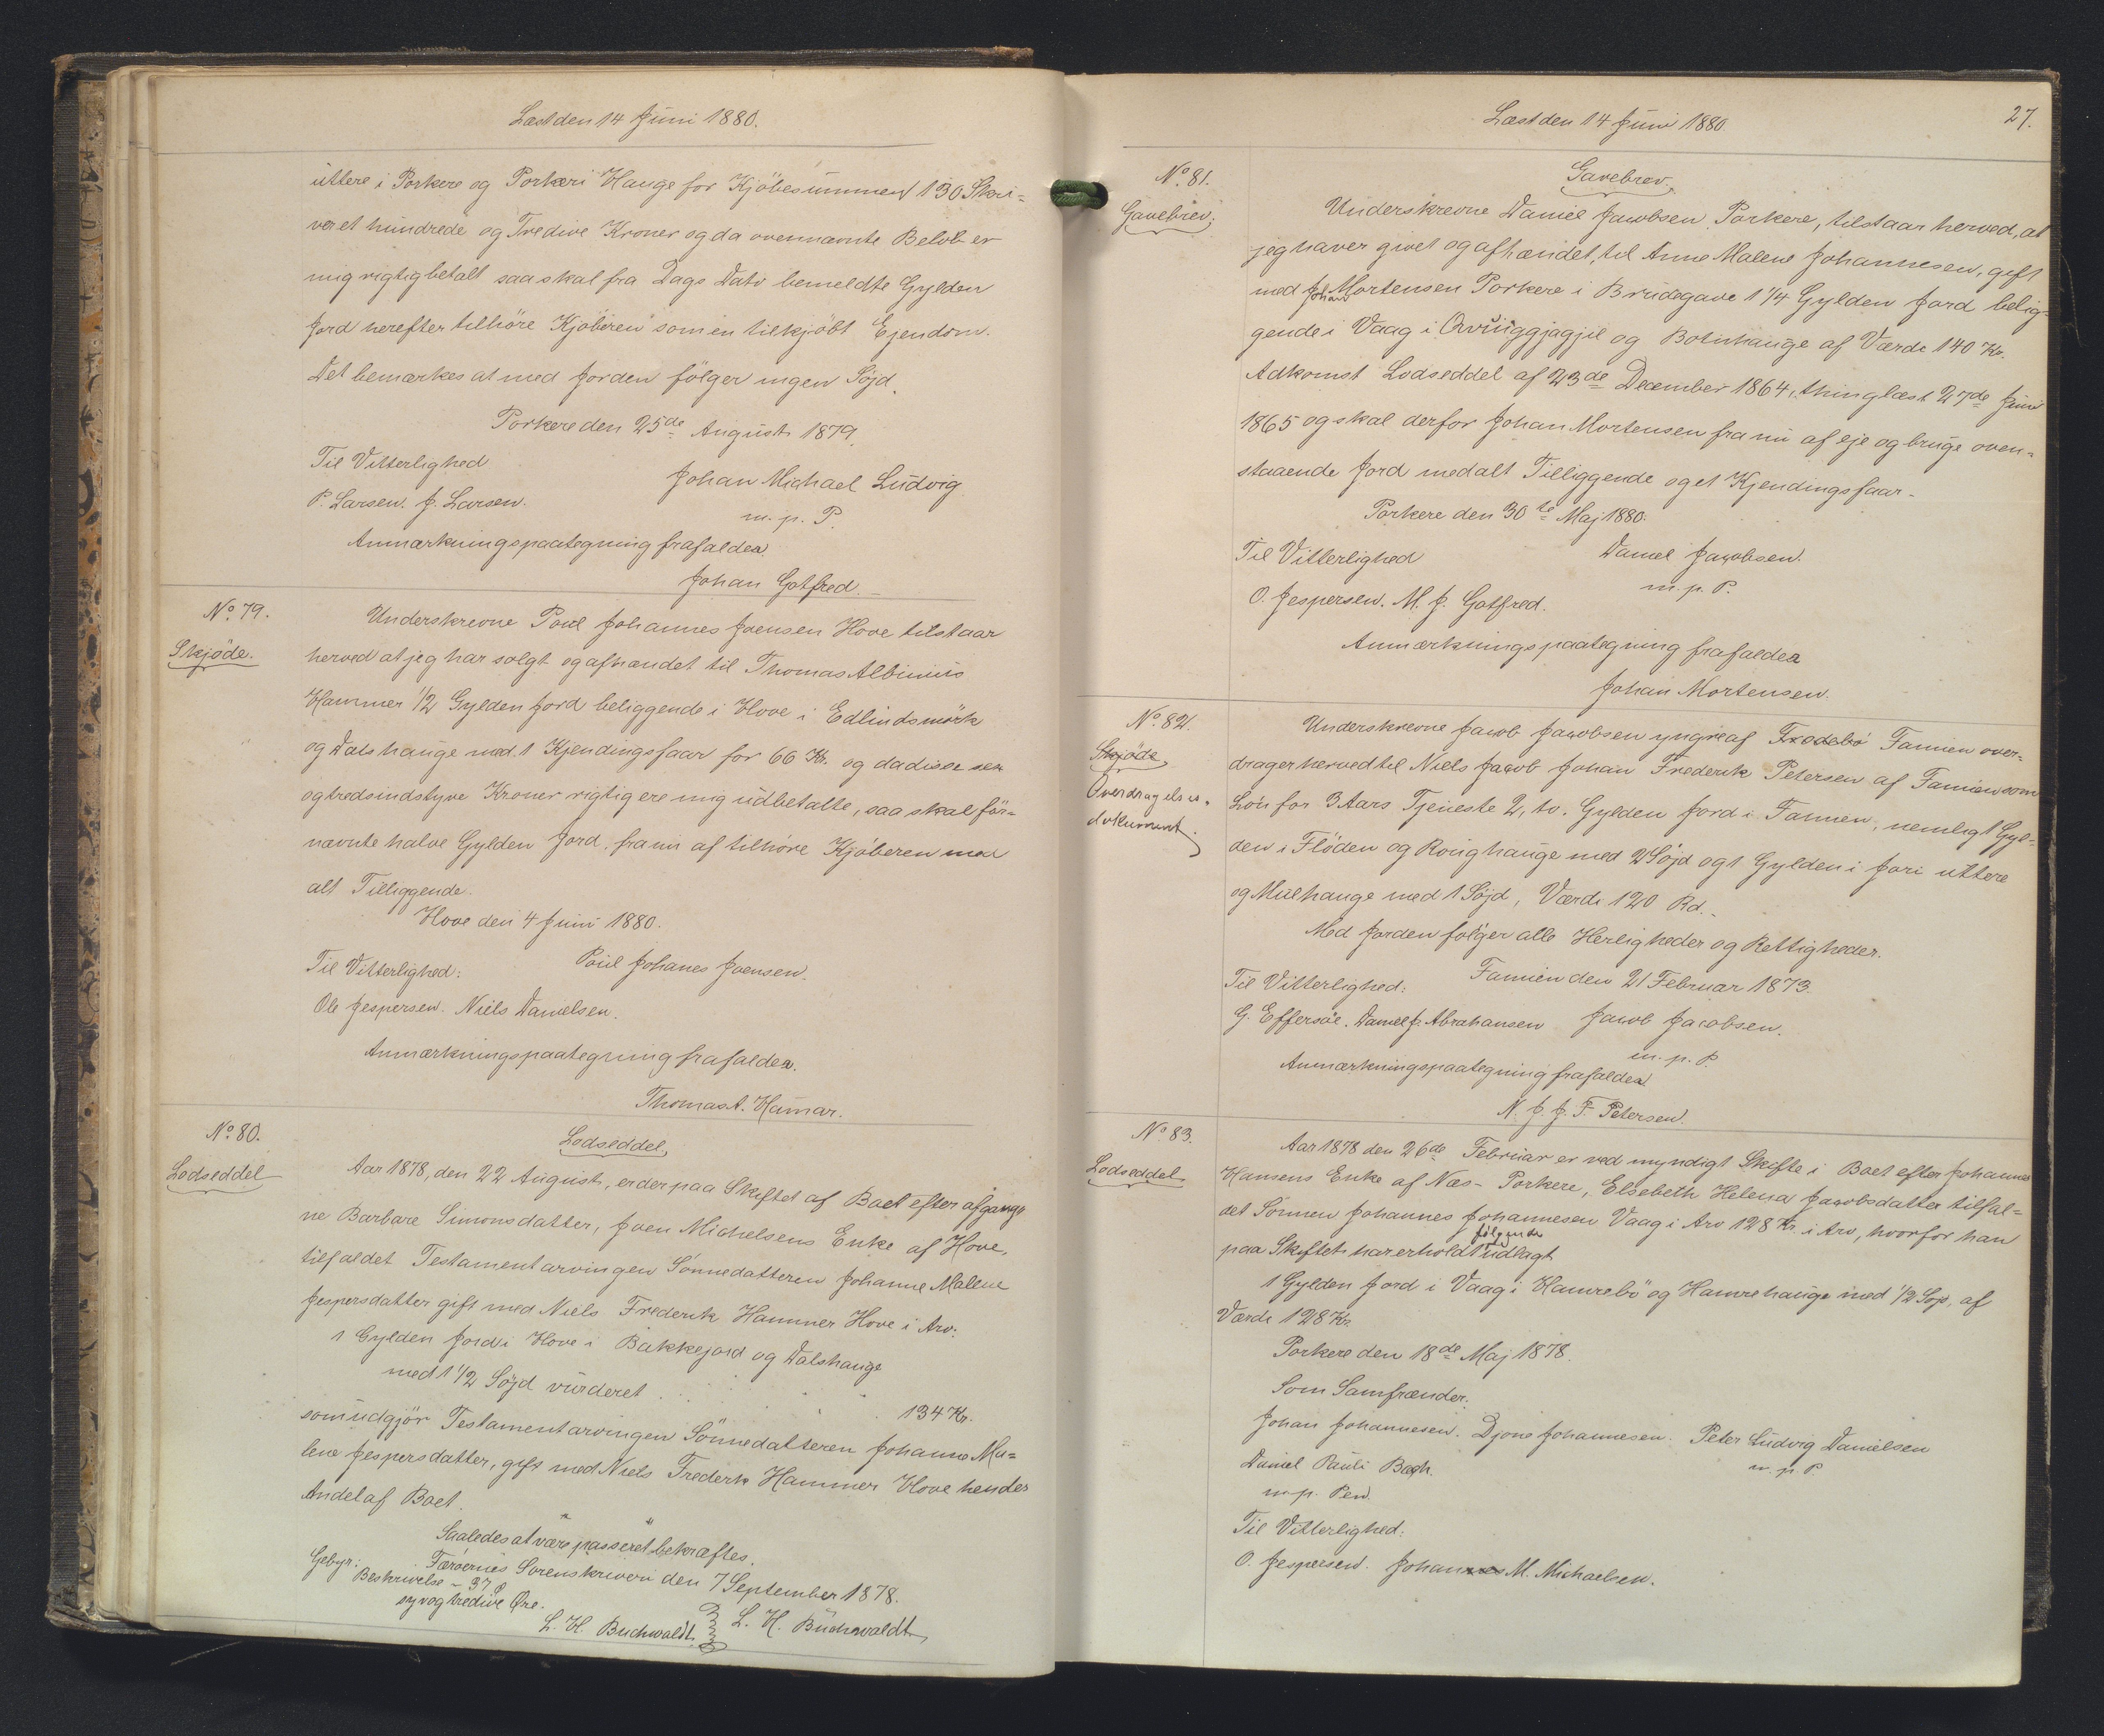 Læst den 14 Juni 1880.
uttere i Porkere og Porkeri Hauge for Kjöbesummen 130 Skri=
ver et hundrede og Tredive Kroner og da ovennævnte Belöb er
mig rigtig betalt saa skal fra Dags Dato bemeldte Gylden
Jord herefter tilhöre Kjöberen som en tilkjöbt Ejendom.
Det bemærkes at med Jorden fölger ingen Söjd.
Porkere den 25de August 1879.
Til Vitterlighed
Johan Michael Ludvig
P. Larsen. J. Larsen.
m. p. P.
Anmærkningspaategning frafaldes
Johan Gotfred.
No 79.
Skjöde.
Underskrevne Poul Johannes Joensen Hove tilstaar
herved at jeg har solgt og afhændet til Thomas Albinius
Hammer 1/2 Gylden Jord beliggende i Hove i Edlindsmörk
og Dalshauge med 1 Kjendingsfaar for 66 Kr. og da disse sex
og tredsindstyve Kroner rigtig ere mig udbetalte, saa skal för=
nævnte halve Gylden Jord, fra nu af tilhöre Kjöberen med
alt Tilliggende.
Hove den 4 Juni 1880.
Til Vitterlighed:
Poul Johanes Joensen.
Ole Jespersen. Niels Danielsen.
Anmærkningspaategning frafaldes.
Thomas A. Hamar.
No 80.
Lodseddel
Lodseddel
Aar 1878, den 22 August, er der paa Skiftet af Boet efter afgang=
ne Barbare Simonsdatter, Joen Michelsens Enke af Hove,
tilfaldet Testamentarvingen Sönnedatteren Johanne Malene
Jespersdatter gift med Niels Frederik Hammer Hove i Arv:
1 Gylden Jord i Hove i Bakkejord og Dalshauge
med 1 1/2 Söjd vurderet . . . . 134 Kr.
som udgjör Testamentarvingen Sönnedatteren Johanne Ma=
lene Jespersdatter, gift med Niels Frederk Hammer Hove hendes
Andel af Boet.
Saaledes at være passeret bekræftes.
Færöernes Sorenskriveri den 7 September 1878.
L. H. Buchwaldt
Gebyr:
Beskrivelse - 37 Ø
syv og tredive Øre.
L. H. Buchwaldt
27.
Læst den 14 Juni 1880.
No 81.
Gavebrev.
Gavebrev.
Underskrevne Daniel Jacobsen Porkere, tilstaar herved, at
jeg haver givet og afhændet, til Anne Malene Johannesen, gift
med Johan Mortensen Porkere i Brudegave 1 1/4 Gylden Jord belig=
gende i Vaag i Qvuiggjagjil og Botnhauge af Værdi 140 Kr.
Adkomst Lodseddel af 23de December 1864, thinglæst 27de Juni
1865 og skal derfor Johan Mortensen fra nu af eje og bruge oven=
staaende Jord med alt Tilliggende og et Kjendingsfaar.
Porkere den 30te Maj 1880.
Til Vitterlighed
Daniel Jacobsen.
O. Jespersen. M. J. Gotfred.
m. p. P.
Anmærkningspaategning frafaldes
Johan Mortensen.
No 82.
Skjöde
Overdragelses=
dokument.
Underskrevne Jacob Jacobsen yngre af Frodebö Famien over=
drager herved til Niels Jacob Johan Frederik Petersen af Famien som
Lön for 3 Aars Tjeneste 2, to. Gylden Jord i Famien, nemlig 1 Gyl=
den i Flöden og Roughauge med 2 Söjd og 1 Gylden i Jari uttere
og Mulhauge med 1 Söjd, Værdi 120 Rd.
Med Jorden fölger alle Herligheder og Rettigheder.
Famien den 21 Februar 1873.
Til Vitterlighed:
G. Effersöe. Daniel J. Abrahamsen
Jacob Jacobsen.
m. p. P.
Anmærkningspaategning frafaldes
N. J. J. F. Petersen.
No 83.
Lodseddel
Aar 1878 den 26de Februar er ved myndigt Skifte i Boet efter Johannes
Hansens Enke af Næs - Porkere, Elsebeth Helena Jacobsdatter tilfal=
det Sönnen Johannes Johannesen Vaag i Arv 128 Kr. i Arv, hvorfor han
paa Skiftet har erholdt fölgende udlagt
1 Gylden Jord i Vaag i Hamrebö og Hamrehauge med 1/2 Söjd, af
Værdi 128 Kr.
Porkere den 18de Maj 1878.
Som Samfrænder:
Johan Johannesen. Djone Johannesen. Peter Ludvig Danielsen
Daniel Pauli Bech.
m. p. P.
m. p. Pen.
Til Vitterlighed:
O. Jespersen. Johannes M. Michaelsen.